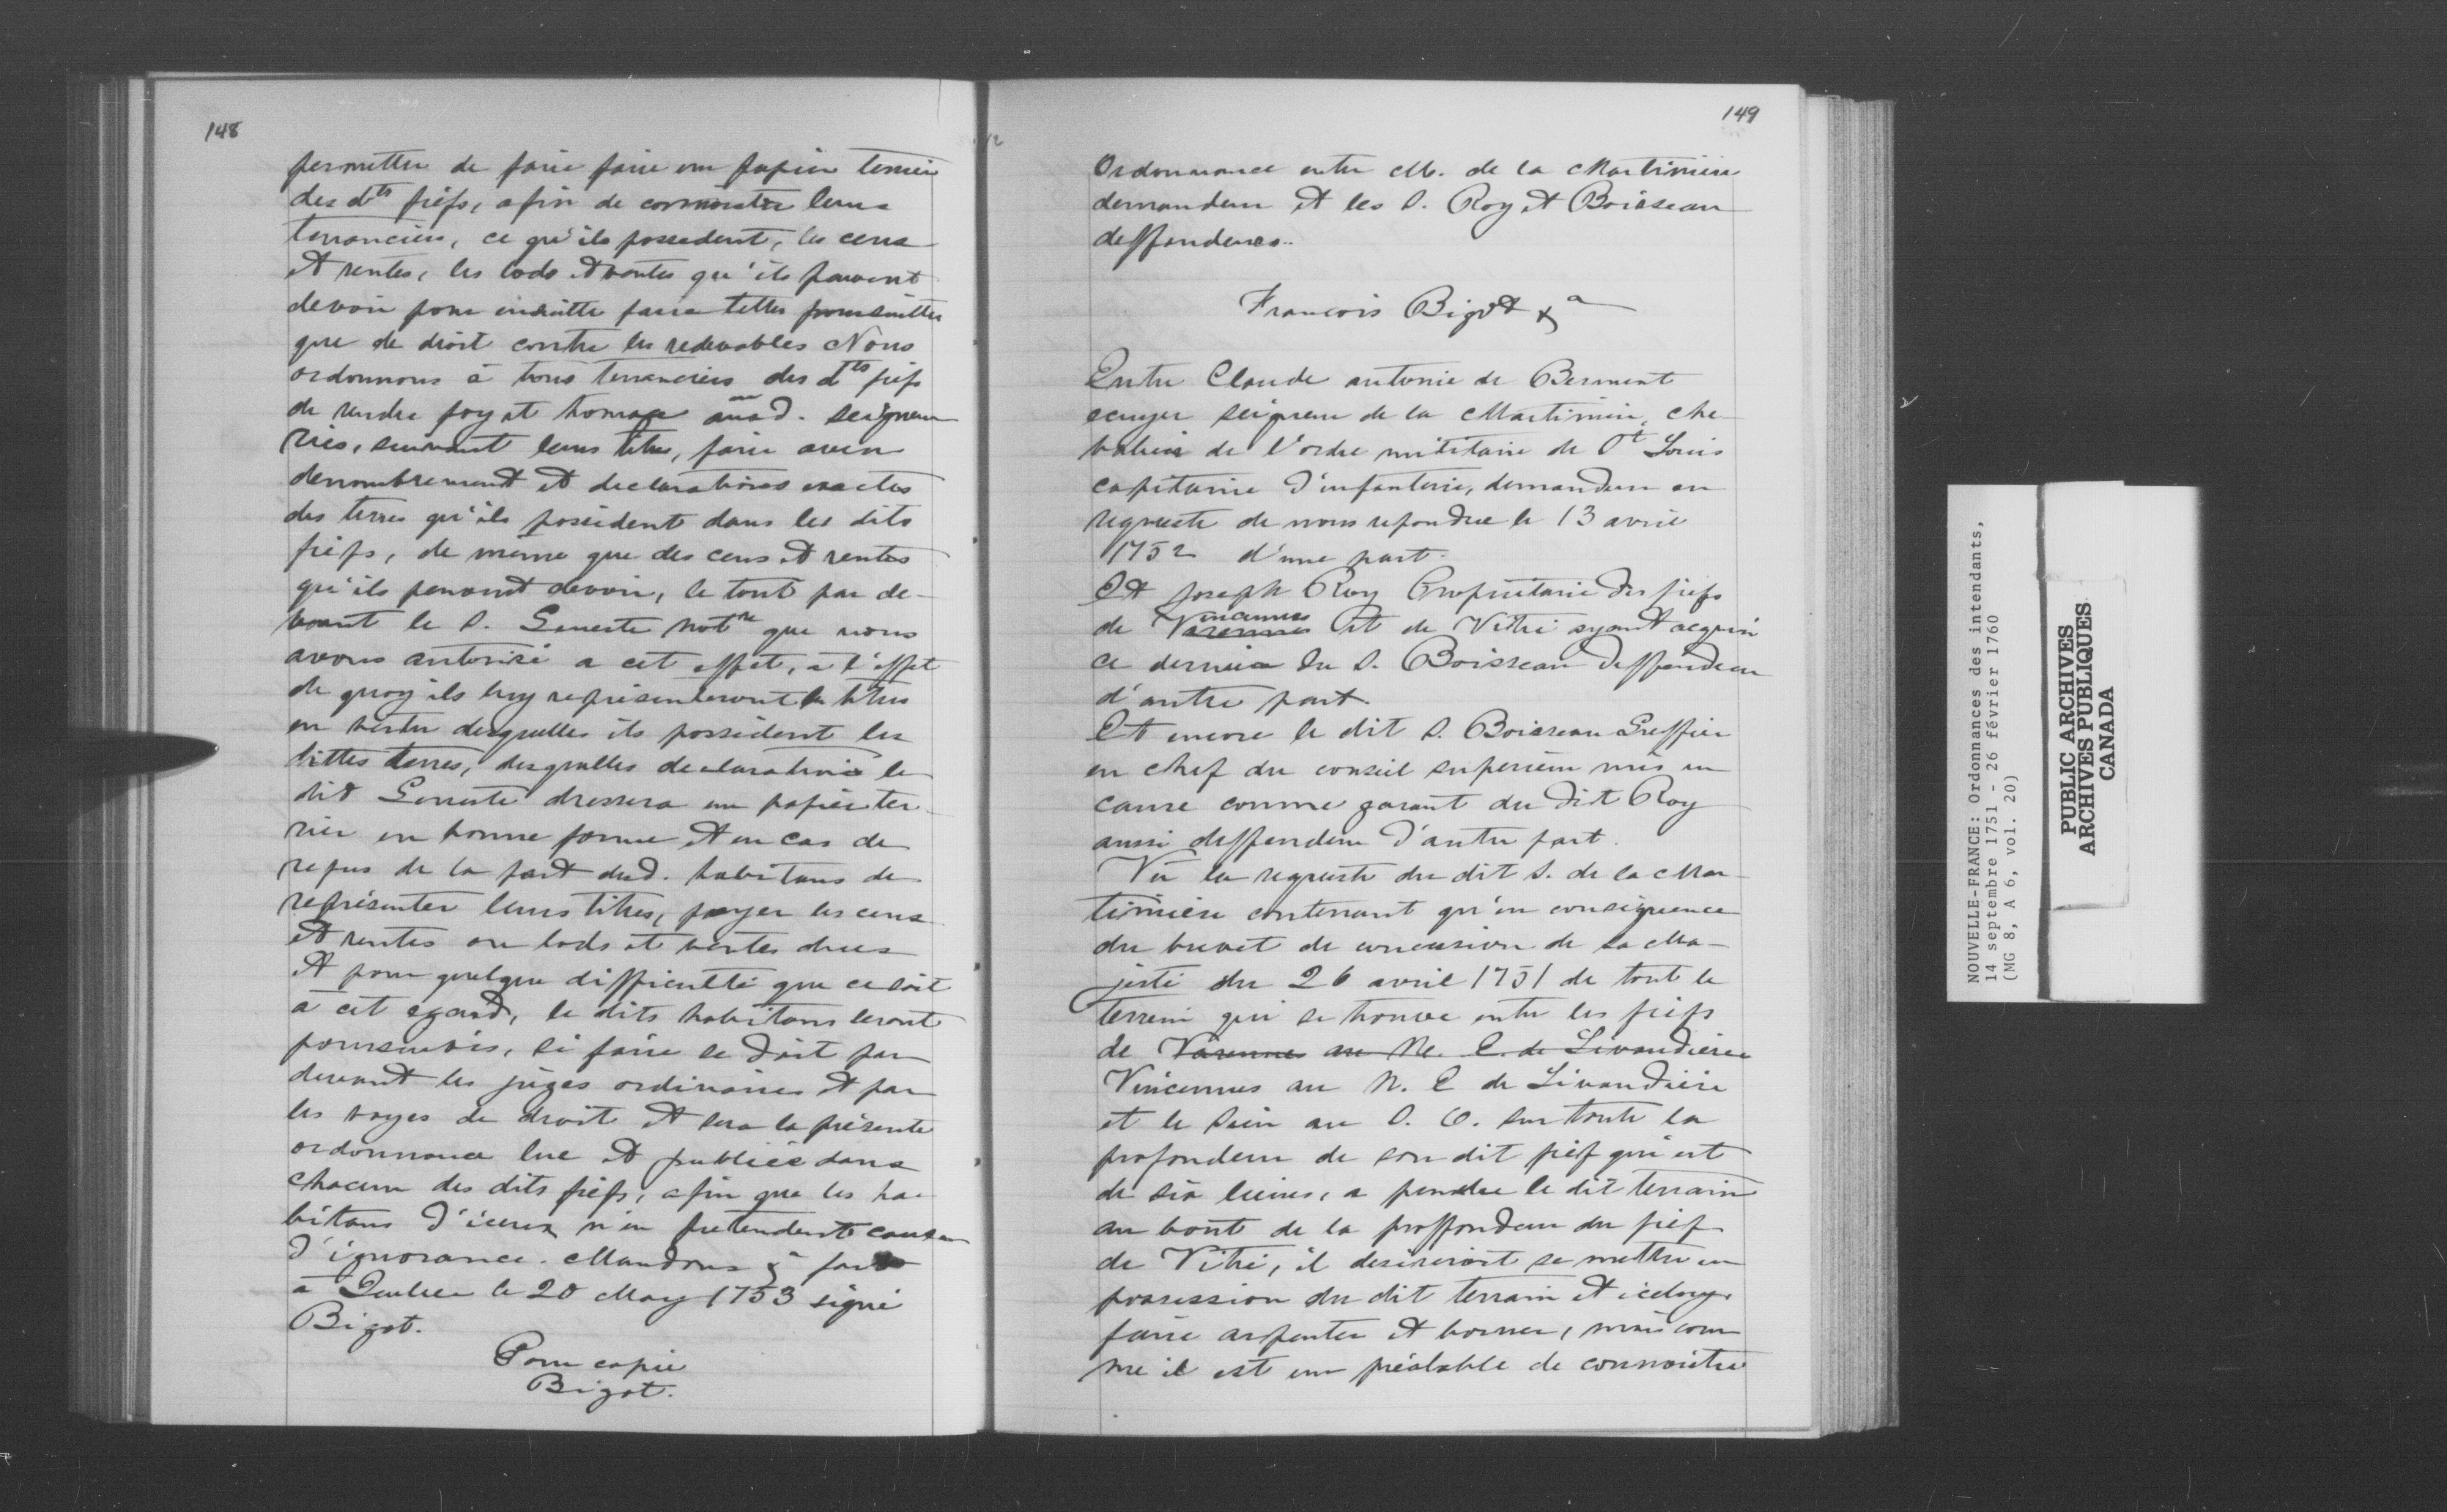 148
permettre de faire faire un papier terrier
des dts fiefs, afin de connoistre leurs
tenanciers, ce qu'ils possedent, les cens
et rentes, les lods et ventes qu'ils peuvent
devoir pour ensuitte faire telles poursuittes
que de droit contre les redevables Nous
ordonnons à tous tenanciers des dts fiefs
de rendre foy et homage auxd. seigneu
ries, suivant leurs titres, faire aveu
denombrement et declarations exactes
des terres qu'ils possedent dans les dits
fiefs, de même que des cens et rentes
qu'ils peuvent devoir, le tout par de-
vant le S. Geneste notre que nous
avons autorisé a cet effet, à l'effet
de quoy ils luy representeront les titres
en vertu desquelles ils possèdent les
dittes terres, desquelles declarations le
dit Geneste dressera un papier ter-
rier en bonne forme et en cas de
refus de la part desd. habitans de
représenter leurs titres, payer les cens
et rentes ou lods et ventes dues
et pour quelque difficulté que ce soit
à cet egard, le dits habitans seront
poursuivis, si faire se doit par
devant les juges ordinaires et par
les voyes de droit et sera la présente
ordonnance lue et publiée dans
chacun des dits fiefs, afin que les ha-
bitans d'iceux n'en pretendent cause
d'ignorance. Mandons & fait
à Quebec le 20 May 1753 signé
Bigot.
Pour copie
Bigot.
149
Ordonnance entre M. de la Martiniere
demandeur et les S. Roy et Boisseau
deffendeurs.
Francois Bigot &a
Entre Claude antoine de Berment
ecuyer seigneur de la Martiniere, che-
valier de l'ordre militaire de St Louis
capitaine d'infanterie, demandeur en
requeste de nous repondue le 13 avril
1752 d'une part.
Et Joseph Roy Proprietaire des fiefs
de Varennes Vincennes et de Vitré ayant acquis
ce dernier du S. Boisseau deffendeur
d'autre part.
Et encore le dit S. Boisseau Greffier
en chef du conseil superieur mis en
cause comme garant du dit Roy
aussi deffendeur d'autre part.
Vû la requeste du dit S. de la Mar-
tiniere contenant qu'en consequence
du brevet de concession de sa Ma-
jesté du 26 avril 1751 de tout le
terrein qui se trouve entre les fiefs
de Varennes au N. E. de Livaudiere
Vincennes au N. E de Livaudière
et le sien au S. O. sur toute la
profondeur de son dit fief qui est
de six lieues, a prendre le dit terrain
au bout de la proffondeur du fief
de Vitré, il desireroit se mettre en
possession du dit terrain et iceluy
faire arpenter et borner, mais com
me il est un préalable de connoistre
NOUVELLE-FRANCE: Ordonnances des intendants,
14 septembre 1751 - 26 février 1760
(MG 8, A 6, vol. 20)
PUBLIC ARCHIVES
ARCHIVES PUBLIQUES
CANADA